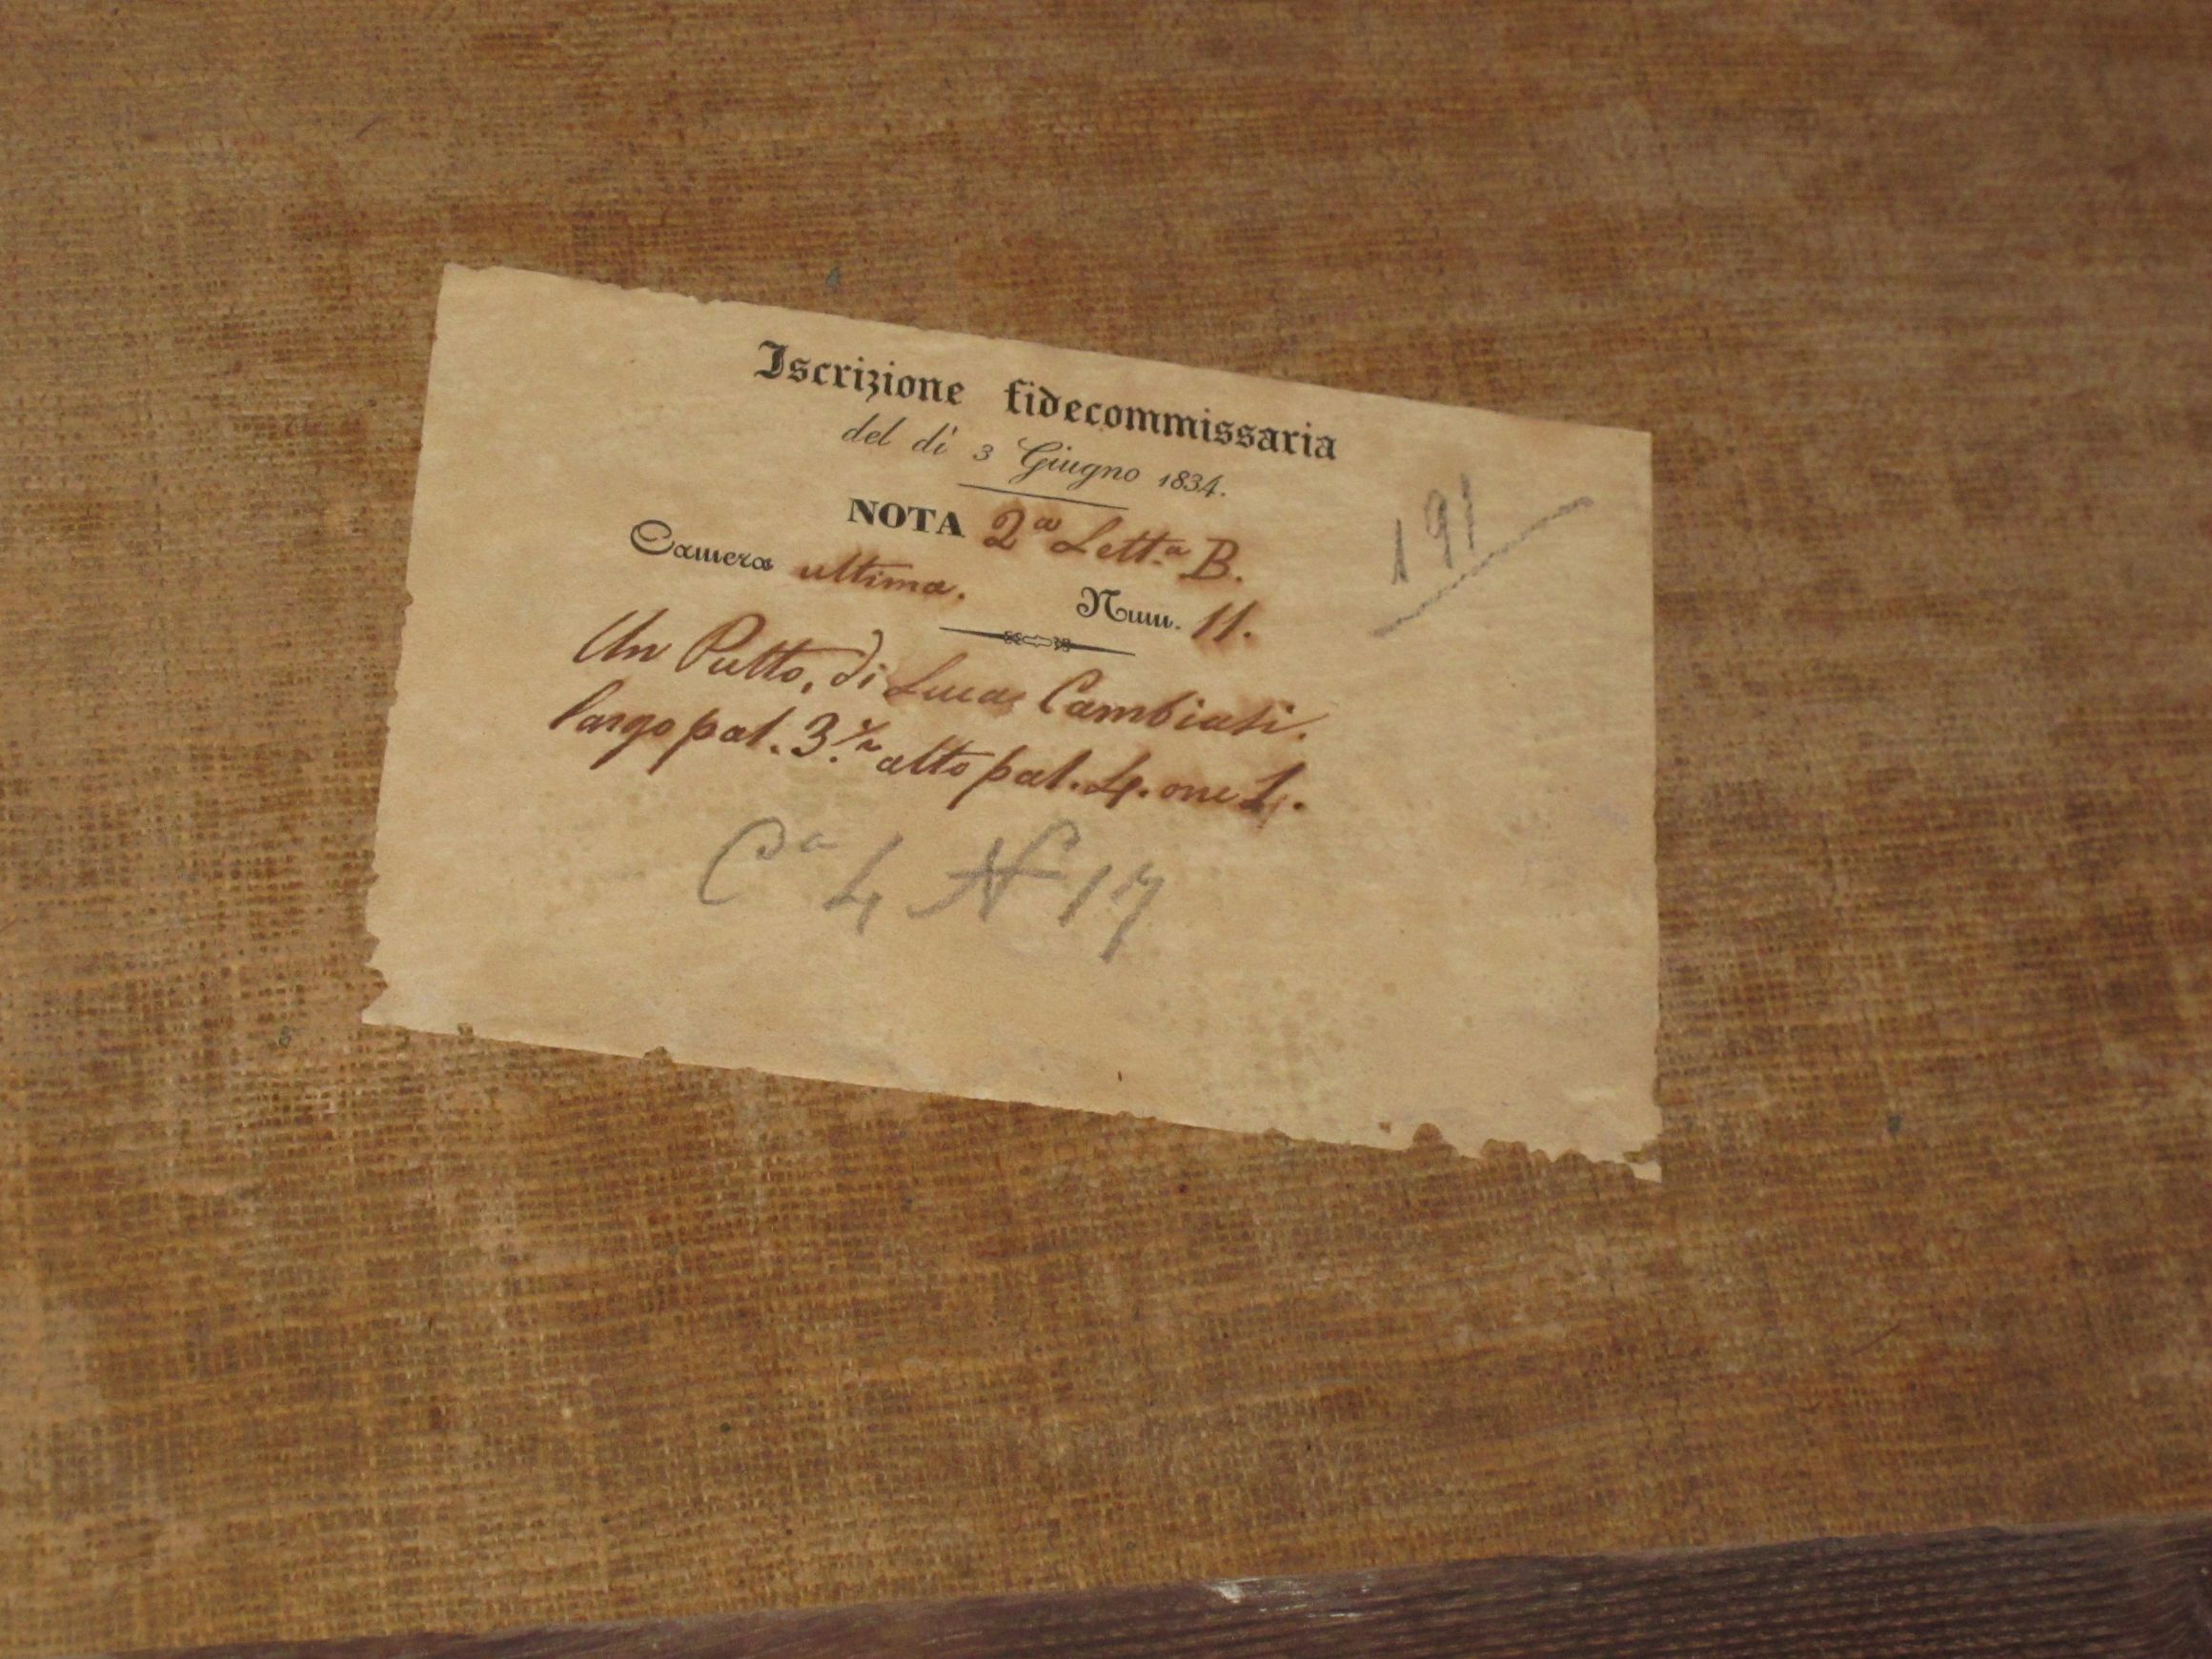 Iscrizione fidecommissaria
del dì 3 Giugno 1834.
NOTA 2ª Lett.ª B.
191
Camera ultima. Num. 11.
Un Putto, di Luca Cambiasi.
largo pal. 3.½ alto pal. 4. onc
Cª 4 Nº 17